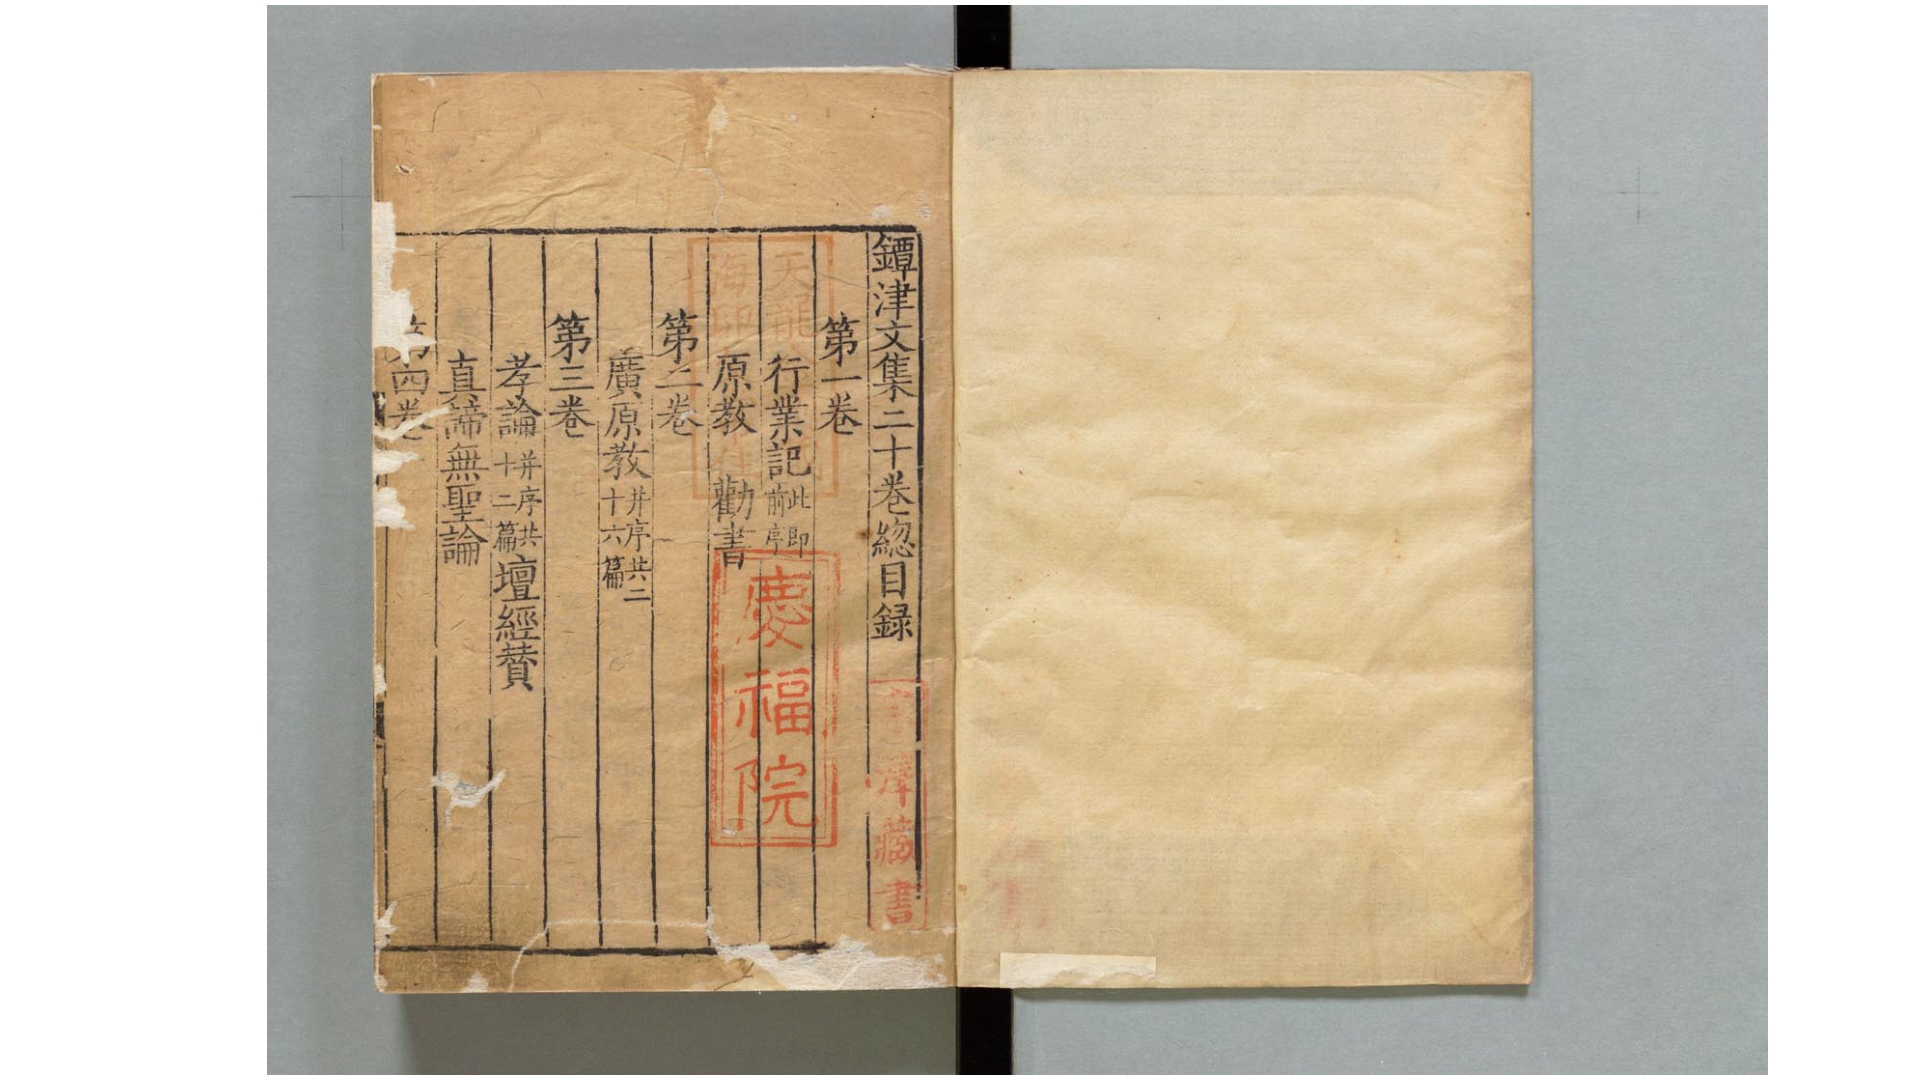 鐔津文集二十卷總目録
第一卷
行業記 此即前序
原教 勸書
第二卷
廣原教 并序共二十六篇
第三卷
孝論 并序共十二篇 壇經贊
真諦無聖論
第四卷
天龍
海印
慶福院
藏書